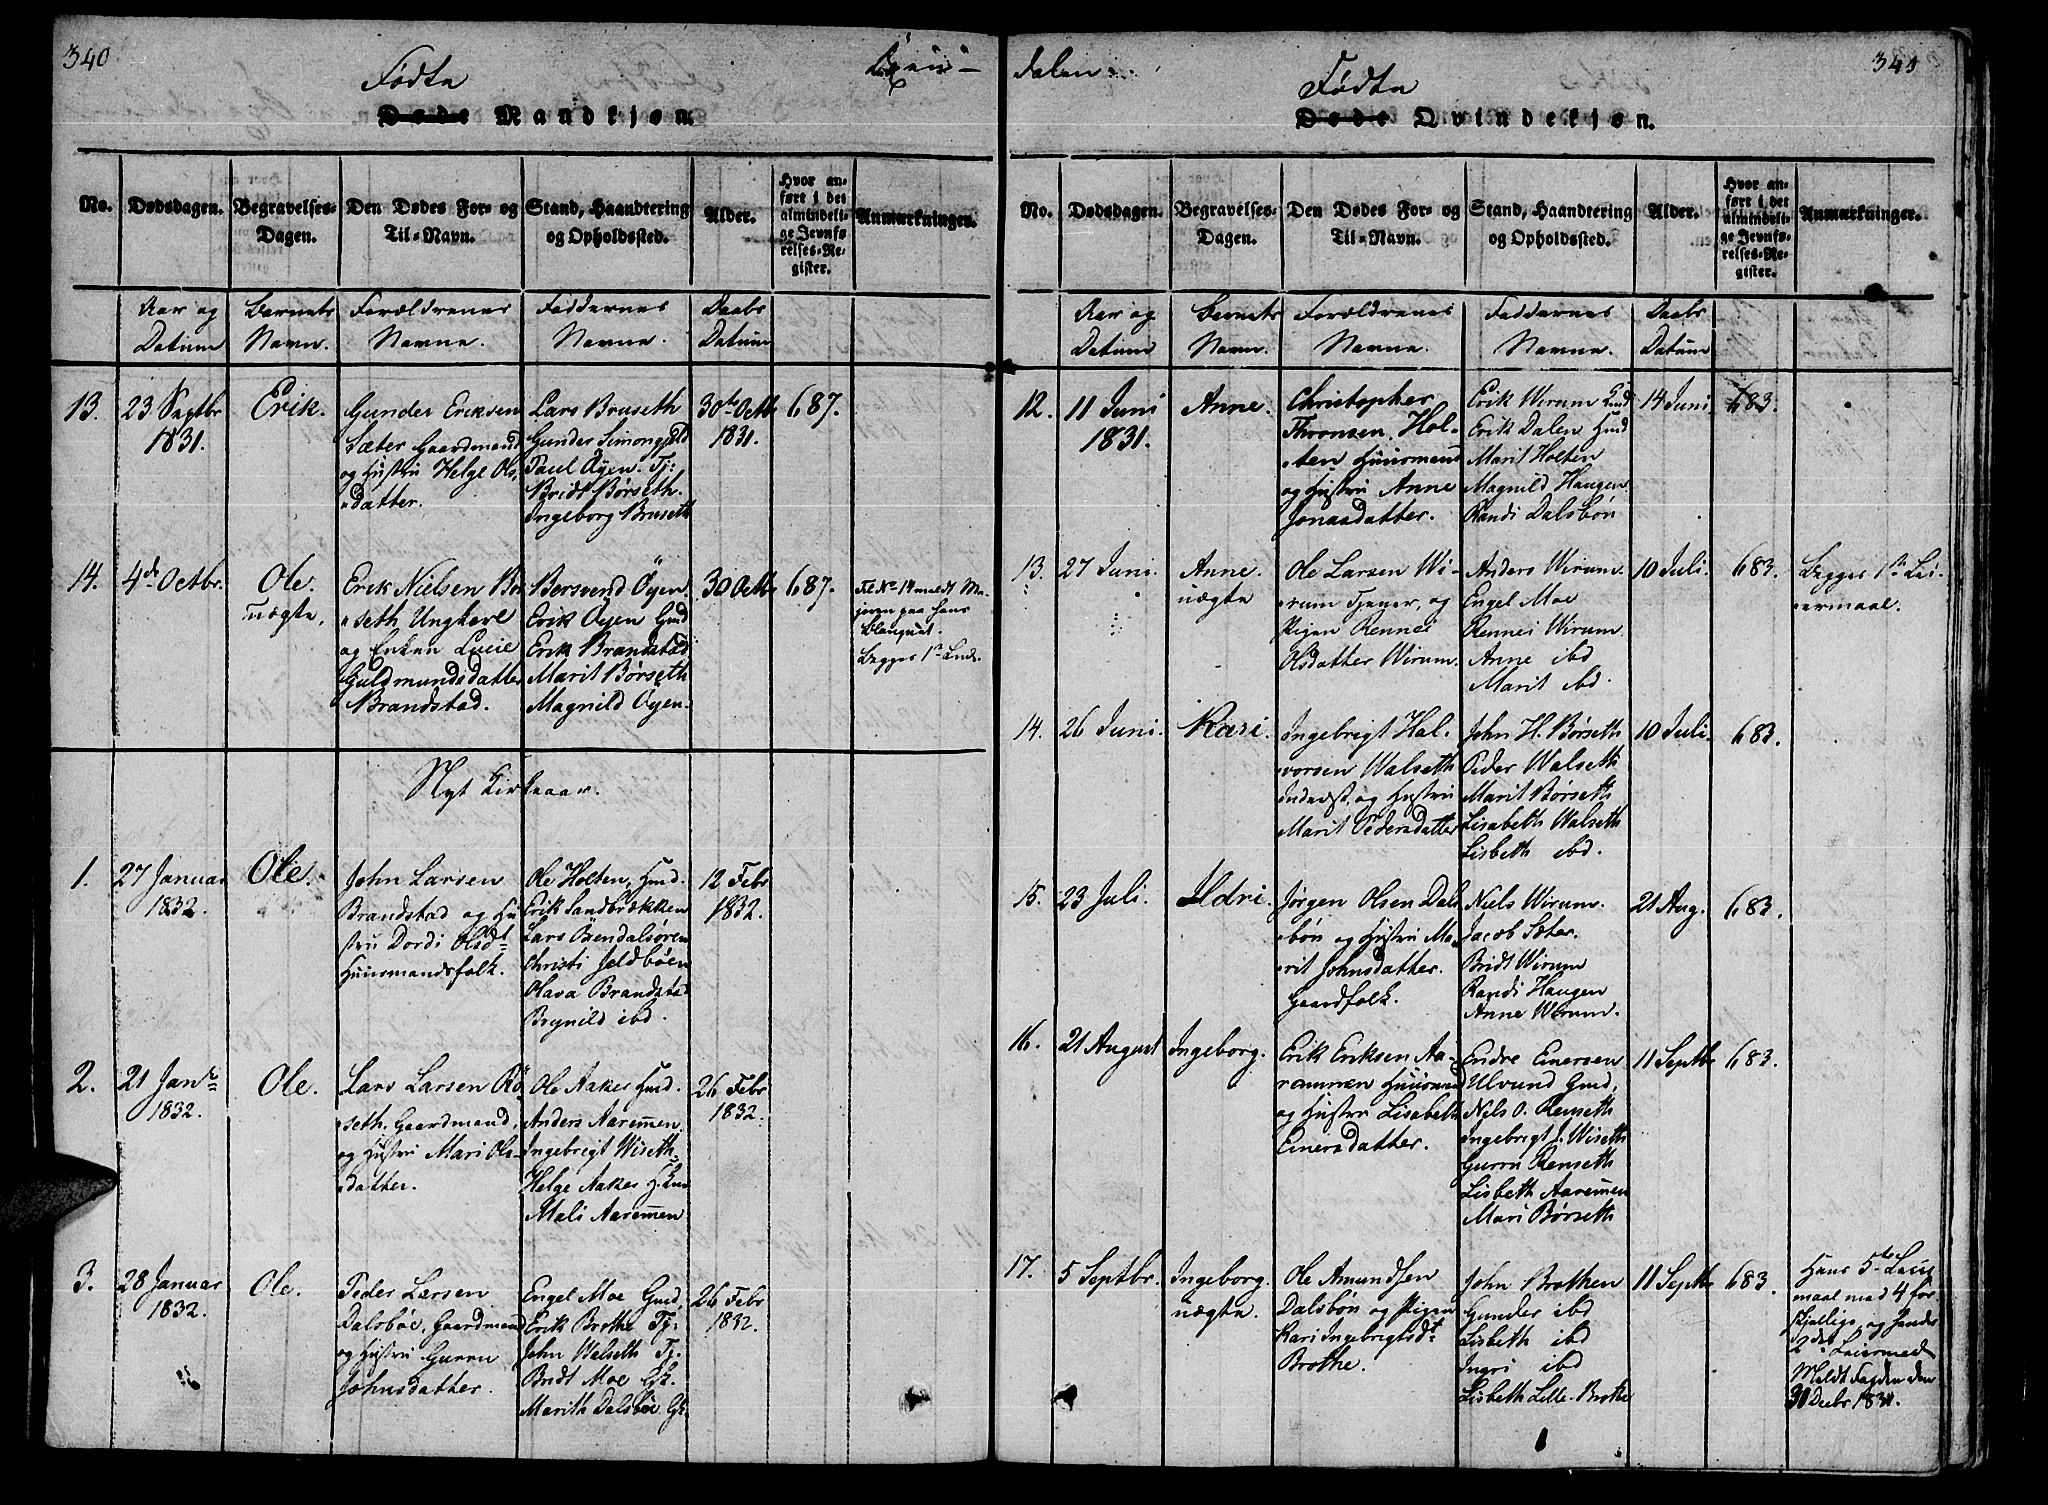 340
Fødte
Døde Mandkjøn.
No.
Dødsdagen.
Begravelses-
Dagen.
Den Dødes For- og
Til-Navn.
Stand, Haandtering
og Opholdssted.
Alder.
Hvor an-
ført i det
almindeli-
ge Jevnfø-
relses-Re-
gister.
Anmærkninger.
Aar og
Datum
Barnets
Navn.
Forældrenes
Navne.
Faddernes
Navne.
Daabs
Datum
13.
23 Septbr
1831.
Erik.
Gunder Eriksen
Sæter Gaardmand
og Hustru Helge Ols-
datter.
Lars Bruseth
Gunder Simong
Paul Öyen. Tj:
Bridt Börseth.
Ingeborg Bruseth
30te Octb
1831.
687.
14.
4de Octbr.
Ole.
uægte.
Erik Nielsen Bör
seth Ungkarl
og Enken Lucie
Guldmundsdatter
Brandstad.
Bersvend Öyen.
Erik Öyen Gmd
Erik Brandstad
Marit Börseth
Magnild Öyen.
30 Octb
687.
Til No 14 meldt Ma-
joren paa hans
Blanquet.
Begges 1ste Leierm.
Nyt Kirkeaar.
1.
27 Januar
1832.
Ole.
John Larsen
Brandstad og Hu
stru Dordi Olsdt
Huusmandsfolk.
Ole Holten, Hmd.
Erik Sandbrækken
Lars Bendalsören
Christi Jeldböen
Olava Brandstad
Brynild ibd.
12 Febr
1832.
2.
21 Janr
1832.
Ole.
Lars Larsen Rö
seth. Gaardmand,
og Hustru Mari Ols-
datter.
Ole Aakes Hmd.
Anders Aaremmen.
Ingebrigt Wiseth
Helge Aakes
Mali Aaremmen
26 Febr
1832.
3.
28 Januar
1832.
Ole.
Peder Larsen
Dalsböe, Gaardmand
og Hustru Gurru
Johnsdatter.
Engel Moe Gmd,
Erik Brothe Tj:
John Walseth Tj.
Bridt Moe Gk.
Marith Dalsböe Gk
26 Febr
1832.
dalen
341
Fødte
Døde Qvindekjøn.
No.
Dødsdagen.
Begravelses-
Dagen.
Den Dødes For- og
Til-Navn.
Stand, Haandtering
og Opholdssted.
Alder.
Hvor an-
ført i det
almindeli-
ge Jevnfø-
relses-Re-
gister.
Anmærkninger.
Aar og
Datum
Barnets
Navn.
Forældrenes
Navne.
Faddernes
Navne.
Daabs
Datum
12.
11 Juni
1831.
Anne.
Christopher
Thronsen, Hol-
ten Huusmand
og Hustru Anne
Jonasdatter.
Erik Wirum Gmd
Erik Dalen Hmd
Marit Holten
Magnild Haugen
Randi Dalsbön
14 Juni.
683.
13.
27 Juni.
Anne.
uægte
Ole Larsen Wi-
rum Tjener, og
Pigen Rennei
Olsdatter Wirum.
Anders Wirum.
Engel Moe
Rennei Wirum.
Anne ibd
Marit ibd.
10 Juli.
683.
Begges 1ste Lei-
ermaal.
14.
26 Juni.
Kari.
Ingebrigt Hal-
vorsen Walseth
Inderst, og Hustru
Marit Pedersdatter
John H. Börseth
Peder Walseth
Marit Börseth
Lisabeth Walseth
Lisbeth ibd.
10 Juli.
683.
15.
23 Juli.
Ildri.
Jörgen Olsen Dals
bön og Hustru Ma-
rit Johnsdatter.
Gaardfolk.
Niels Wirum.
Jacob Sæter.
Bridt Wirum
Randi Haugen
Anne Wirum.
21 Aug.
683.
16.
21 August
Ingeborg.
Erik Eriksen Aa-
remmen Huusmand
og Hustru Lisabeth
Einersdatter.
Endre Enersen
Ulvund Gmd,
Nils O. Renseth
Ingebrigt J. Wiseth
Gurru Renseth
Lisbeth Aaremmen
Mari Börseth
11 Septbr
683.
17.
5 Septbr.
Ingeborg.
uægte.
Ole Amundsen
Dalsbön og Pigen
Kari Ingebrigtsdt
Brothe.
John Brothen
Gunder ibd
Lisbeth ibd
Ingri ibd
Lisbeth Lille-Brothe
11 Septbr
683.
Hans 5te Leier
maal med 4 for
skjellige, og hendes
Leiermaal
Meldt Fogden den
30 Decbr 1831.